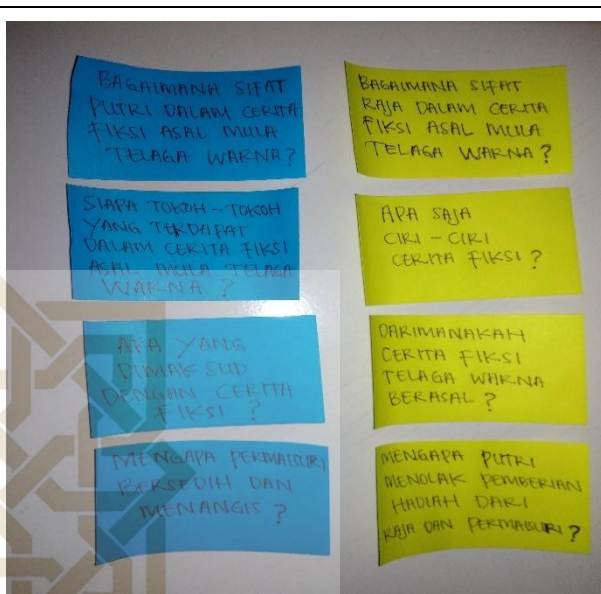 BAGAIMANA SIFAT
PUTRI DALAM CERITA
FIKSI ASAL MULA
TELAGA WARNA?
SIAPA TOKOH-TOKOH
YANG TERDAPAT
DALAM CERITA FIKSI
ASAL MULA TELAGA
WARNA?
APA YANG
DIMAKSUD
DENGAN CERITA
FIKSI?
MENGAPA PERMAISURI
BERSEDIH DAN
MENANGIS?
BAGAIMANA SIFAT
RAJA DALAM CERITA
FIKSI ASAL MULA
TELAGA WARNA?
APA SAJA
CIRI-CIRI
CERITA FIKSI?
DARIMANAKAH
CERITA FIKSI
TELAGA WARNA
BERASAL?
MENGAPA PUTRI
MENOLAK PEMBERIAN
HADIAH DARI
RAJA DAN PERMAISURI?